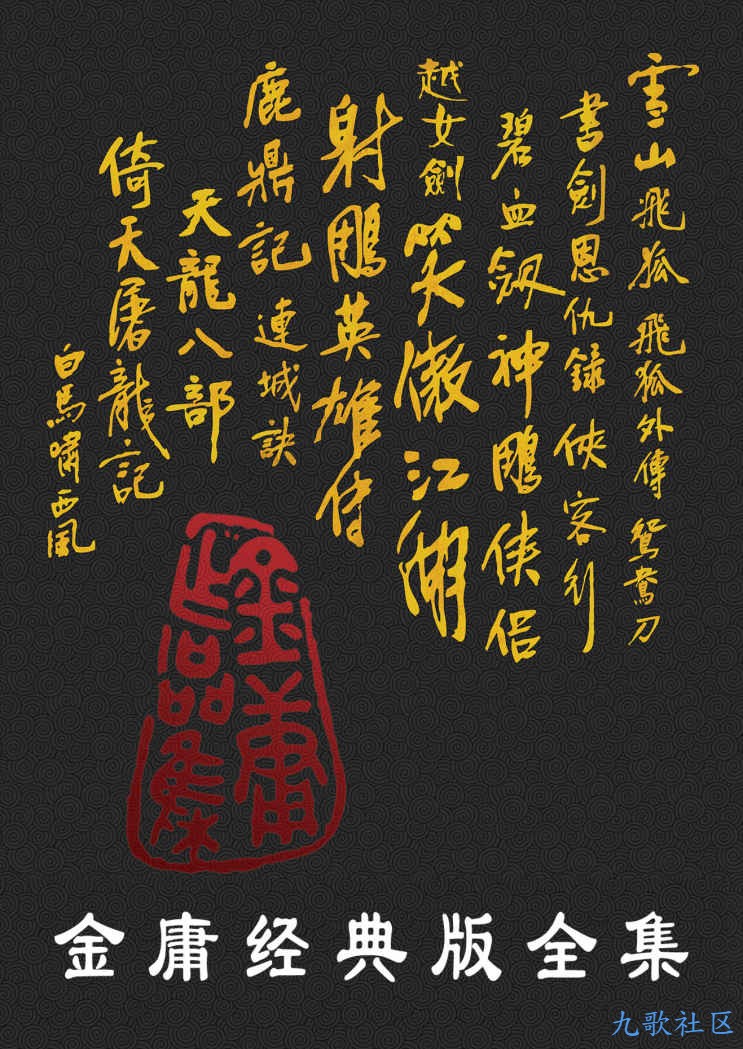 雪山飛狐 飛狐外傳 鴛鴦刀
書劍恩仇録 俠客行
碧血劔 神鵰侠侣
越女劍 笑傲江湖
射鵰英雄传
鹿鼎記 連城訣
天龍八部
倚天屠龍記
白馬嘯西風
金庸
作品集
金庸经典版全集
九歌社区